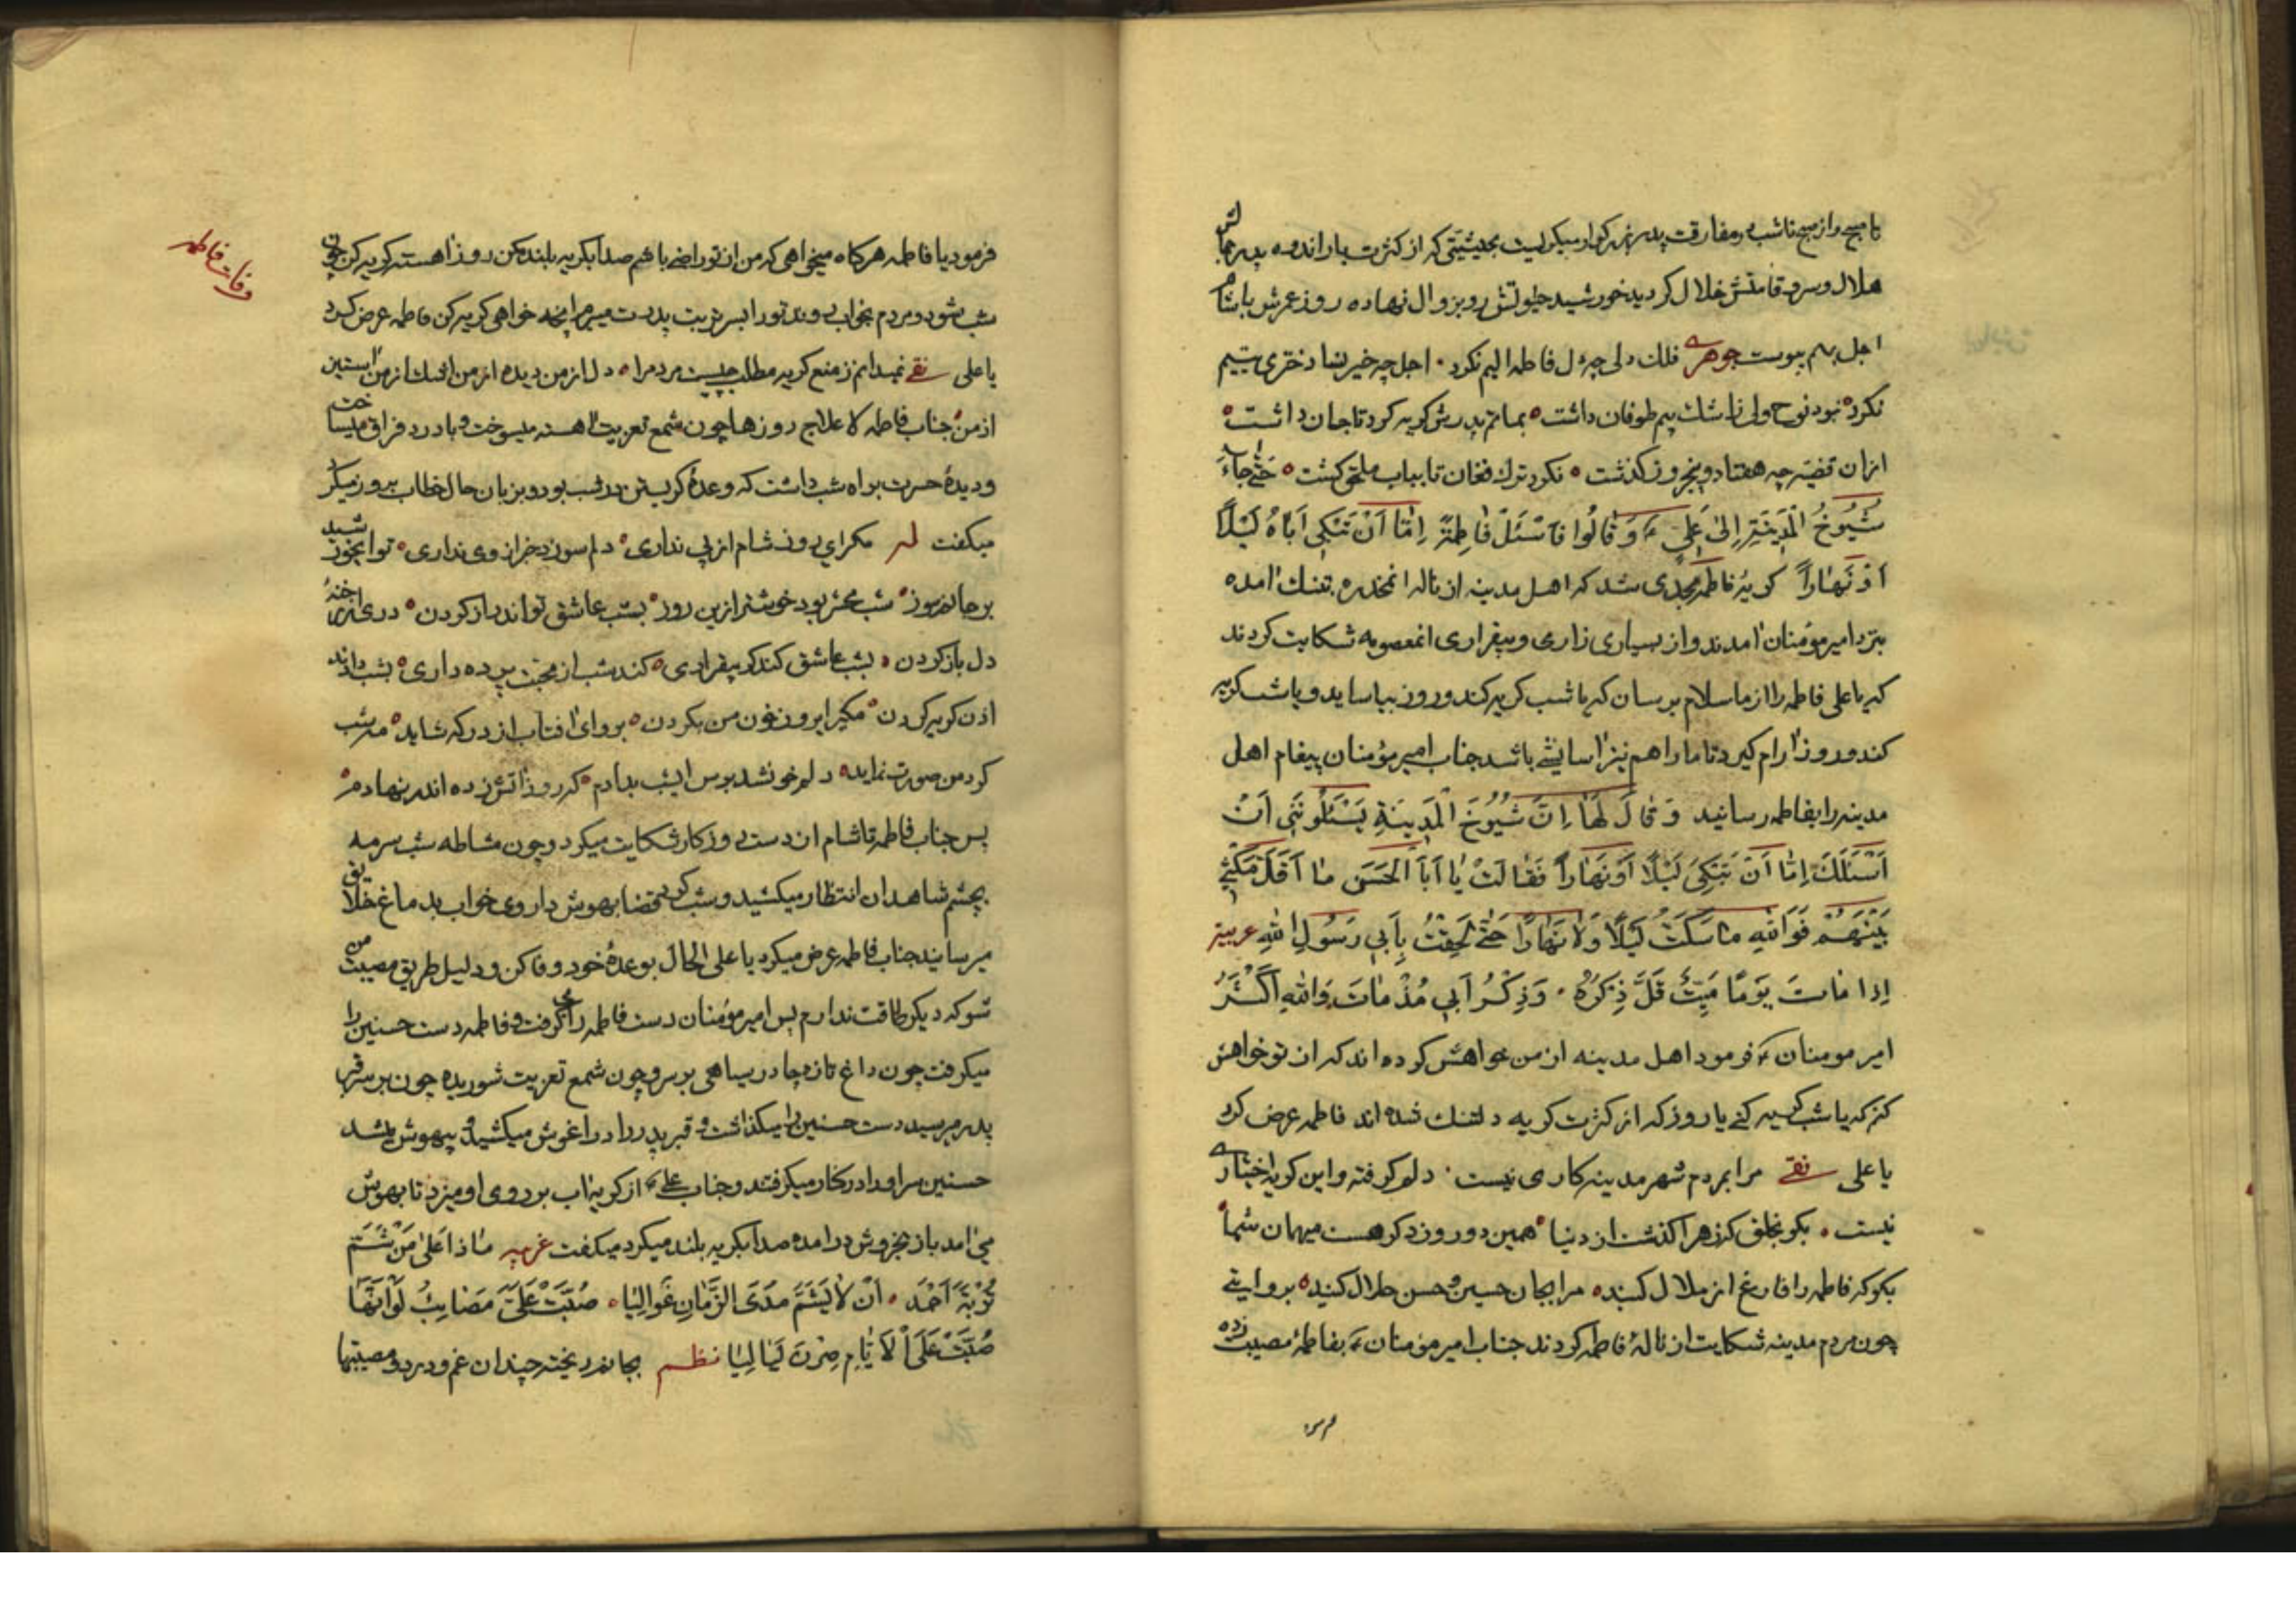 تا صبح و از صبح تا شب در مفارقت پدر بزرگوار میگریست بحیثیتی که از کثرت بار اندوه بدر جمالش
هلال و سرو قامتش خلال کردید خورشید حیوتش رو بزوال نهاده روز عمرش با شام
اجل بهم پیوست جوهری فلک دلی چه دل فاطمه الیم نکرد اجل چه خیر نسا دختری یتیم
نکرد نبود نوح ولی ز اشک بیم طوفان داشت بماتم پدرش کریه کرد تا جان داشت
از ان قضیه چه هفتاد و پنج روز کذشت نکرد ترک فغان تا بباب ملحق کشت حتی جاء
شیوخ المدینة الی علی ع و قالوا فاسئل فاطمة اما ان تبکی اباه لیلا
او نهارا کریهٔ فاطمه بحدی شد که اهل مدینه از ناله انمخدره بتنک امده
بنزد امیر مؤمنان امدند و از بسیاری زاری و بیقراری انمعصومه شکایت کردند
که یا علی فاطمه را از ما سلام برسان که یا شب کریه کند و روز بیاساید و یا شب کریه
کند و روز ارام کیرد تا ما را هم نیز اسایشی باشد جناب امیر مؤمنان پیغام اهل
مدینه را بفاطمه رسانید و قال لها ان شیوخ المدینة یسئلوننی ان
اسئلک اما ان تبکی لیلا او نهارا فقالت یا ابا الحسن ما اقل مکثی
بینهم فوالله ما سکت لیلا ولا نهارا حتی لحقت بابی رسول الله عربیة
اذا مات یوما میت قل ذکره وذکر ابی مذ مات والله اکثر
امیر مومنان ع فرمود اهل مدینه از من خواهش کرده اند که از تو خواهش
کنم که یا شب کریه کنی یا روز که از کثرت کریه دلتنک شده اند فاطمه عرض کرد
یا علی نقی مرا بمردم شهر مدینه کاری نیست دلم کرفته و این کریه اختیاری
نیست بکو بخلق که زهرا کذشت از دنیا همین دو روز دکر هست میهمان شما
بکو که فاطمه را فارغ از ملال کنید مرا بجان حسین و حسن حلال کنید بروایتی
چون مردم مدینه شکایت از نالهٔ فاطمه کردند جناب امیر مؤمنان ع بفاطمهٔ مصیبت زده
فرمود
وفات فاطمه
فرمود یا فاطمه هرکاه میخواهی که من از تو راضی باشم صدا بکریه بلند مکن روز اهسته کریه کن چون
شب شود و مردم بخواب روند تو را بسر تربت پدرت میبرم انچه خواهی کریه کن فاطمه عرض کرد
یا علی نقی نمیدانم ز منع کریه مطلب چیست مردم را دل از من دیده از من اشک از من استین
از من جناب فاطمه لا علاج روزها چون شمع تعزیت اهسته میسوخت و با درد فراق میساخت
و دیدهٔ حسرت براه شب داشت که وعدهٔ کریستن در شب بود و بزبان حال خطاب بروز میکرد
میکفت مکر ای روز شام از پی نداری دلم سوزد خبر از وی نداری تو ای خورشید
بر جانم مسوز شب محشر بود خوشتر ازین روز بشب عاشق تواند راز کردن
دل باز کردن بشب عاشق کند کر بیقراری کند شب از محبت پرده داری بشب داند
اذن کریه کردن مکیر ایروز خون من بکردن برو ای افتاب از در که شاید مه شب
کرد من صورت نماید دلم خوشد بوس ایشب بدادم که روز اتش زده اندر نهادم
پس جناب فاطمه تا شام از دست روزکار شکایت میکرد و چون مشاطه شب سرمه
بچشم شاهدان انتظار میکشید و شب کرد قضا بهوش داروی خواب بدماغ خلایق
میرسانید جناب فاطمه عرض میکرد یا علی الحال بوعدهٔ خود وفا کن و دلیل طریق مصیبت من
شو که دیکر طاقت ندارم پس امیر مؤمنان دست فاطمه را می کرفت و فاطمه دست حسنین را
میکرفت چون داغ تازه چادر سیاهی بر سر و چون شمع تعزیت شوریده چون بر سر قبر
پدر میرسید دست حسنین را میکذاشت و قبر پدر را در اغوش میکشید و بیهوش میشد
حسنین سر او را در کنار میکرفتند و جناب علی ع از کریه اب بر روی او میزد تا بهوش
می امد باز بخروش در امده صدا بکریه بلند میکرد میکفت عربیه ماذا علی من شم
تربة احمد ان لا یشم مدی الزمان غوالیا صبت علی مصائب لو انها
صبت علی الایام صرن لیالیا نظم بجانم ریخته چندان غم و درد و مصیبتها